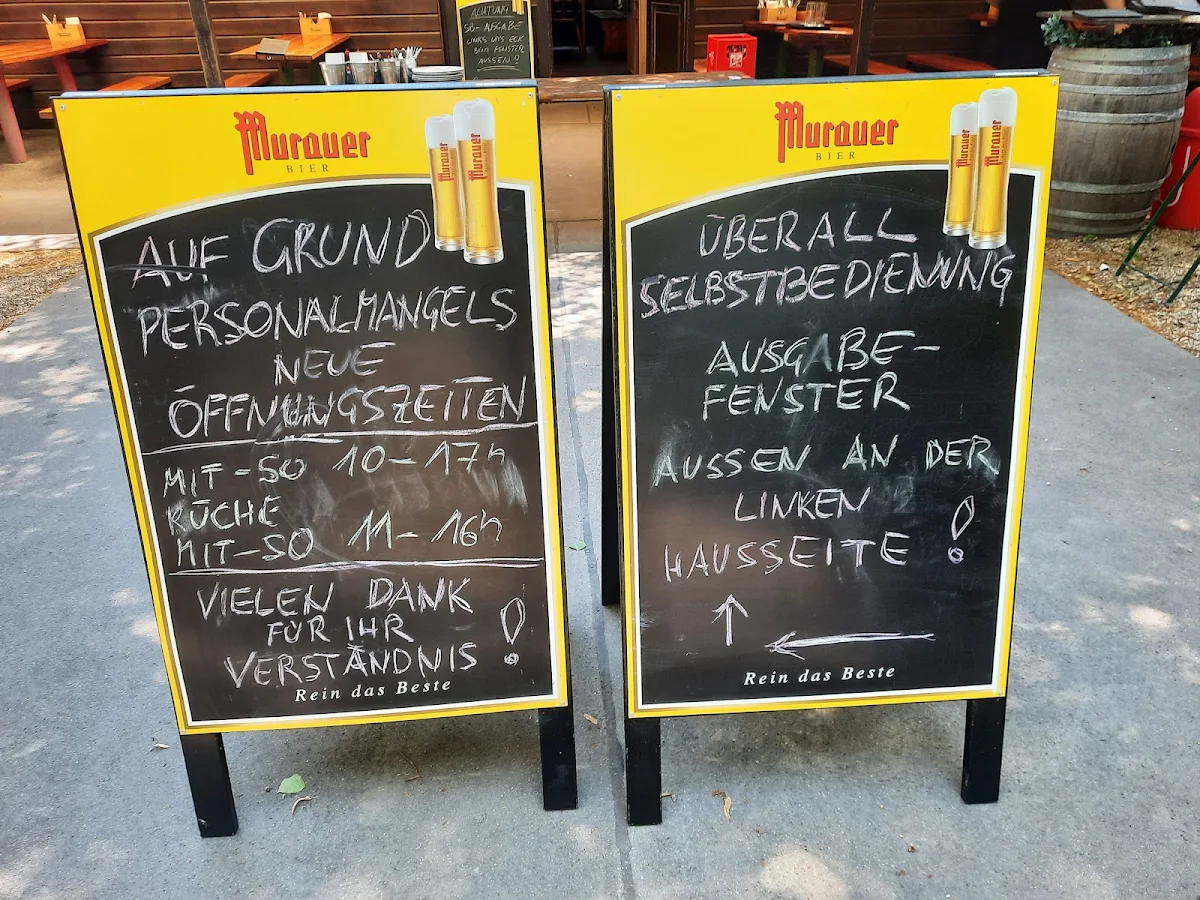 ACHTUNG!
SB-AUSGABE
LINKS UMS ECK
BEIM FENSTER
AUSSEN!
Murauer
BIER
Murauer
Murauer
AUF GRUND
PERSONALMANGELS
NEUE
ÖFFNUNGSZEITEN
MIT-SO 10-17h
KÜCHE
MIT-SO 11-16h
VIELEN DANK
FÜR IHR
VERSTÄNDNIS !
Rein das Beste
Murauer
BIER
Murauer
Murauer
ÜBERALL
SELBSTBEDIENUNG
AUSGABE-
FENSTER
AUSSEN AN DER
LINKEN
HAUSSEITE !
Rein das Beste